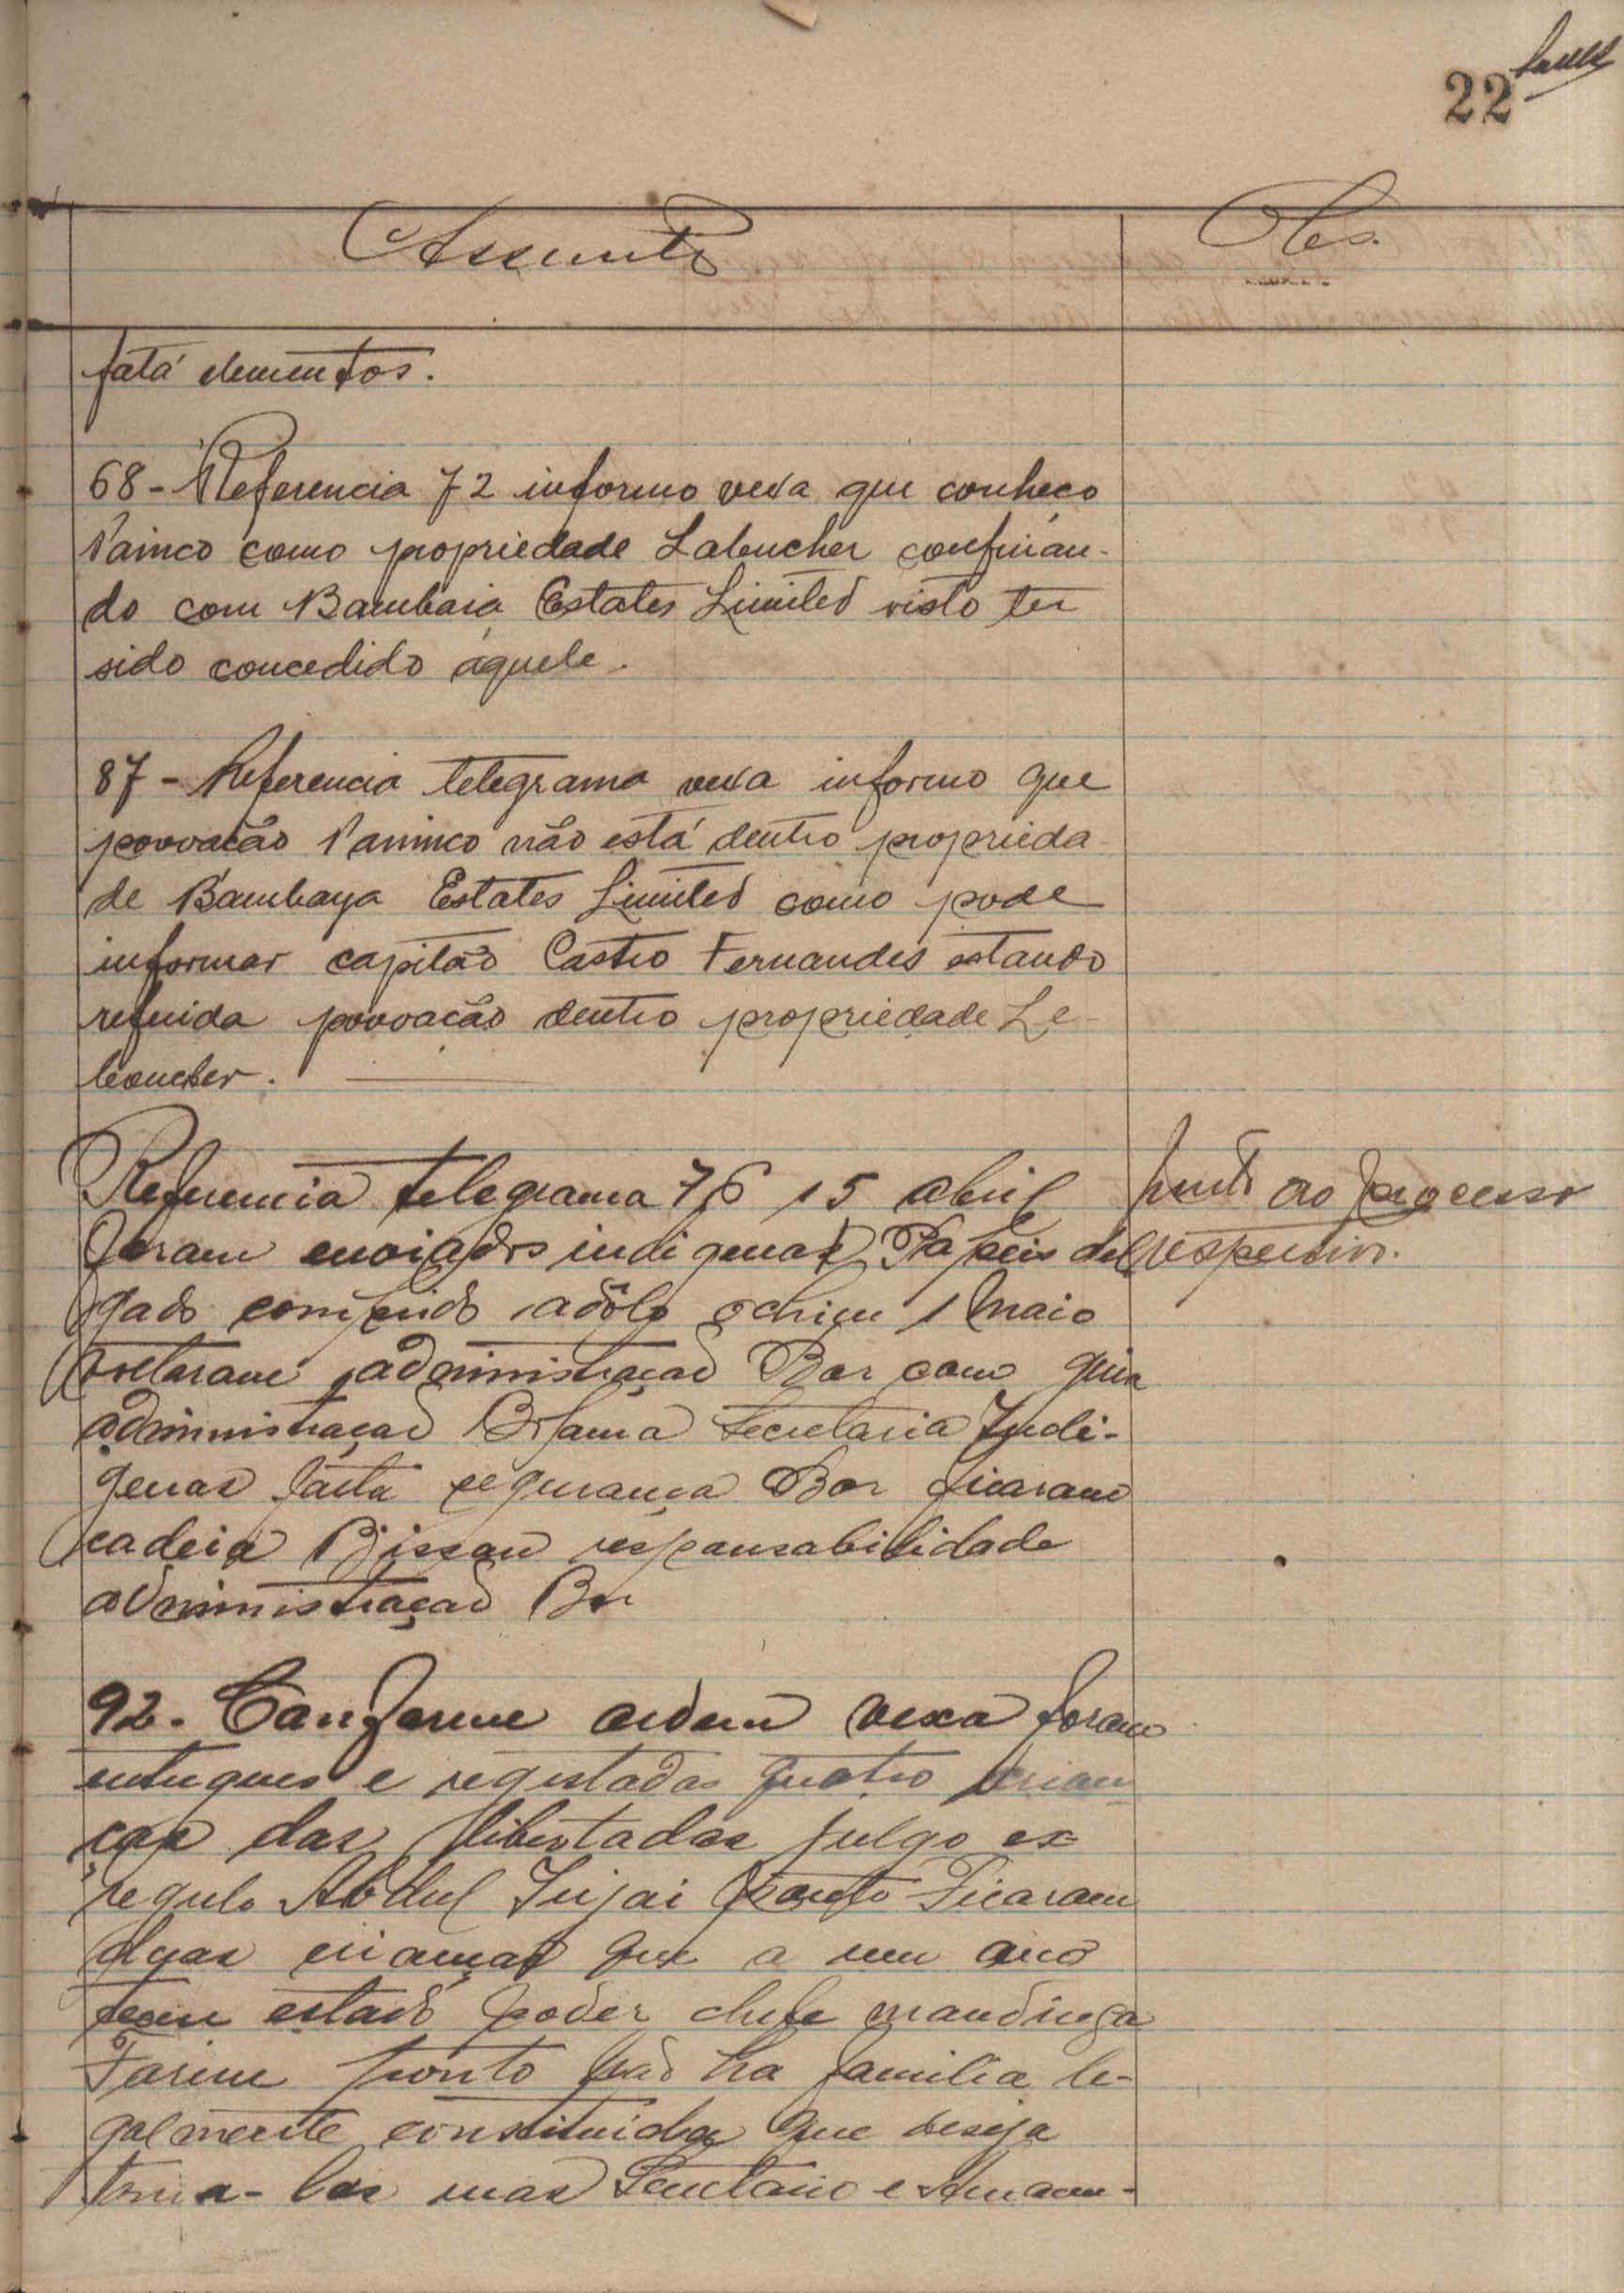 22
Assunto
Obs.
fatá elementos.
68 - Referencia 72 informo vexa que conheço
como propriedade Labucher confinan-
do com Bambaia Estates Limited visto ter
sido concedido áquele.
87 - Referencia telegrama vexa informo que
povoação não está dentro proprieda-
de Bambaya Estates Limited como pode
informar capitão Castro Fernandes estando
referida povoação dentro propriedade Le-
boucher.
Referencia telegrama 76 15 abril
Junto ao processo
foram enviados indigenas Papeis del
respectivo.
gado 1 Maio
voltaram administração Bor com guia
administração Bolama Secretaria Indi-
genas falta segurança Bor ficaram
cadeia Bissau responsabilidade
administração Bor
92 - Conforme ordem vexa foram
entregues e registadas quatro crian
ças das libertadas julgo ex-
regulo Abdul Injai ponto Ficaram
duas crianças que a um ano
teem estado poder chefe mandinga
Farim ponto Não ha familia le-
galmente constituida que deseja
toma-las mas Secretario e Amanu-